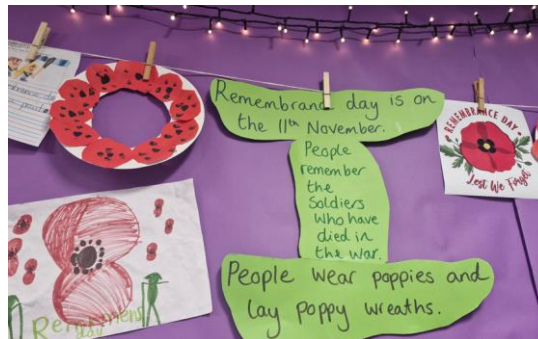 Remembrance day is on
the 11th November.
People
remember
the
Soldiers
who have
died in
the war.
People wear poppies and
lay poppy wreaths.
REMEMBRANCE DAY
Lest We Forget